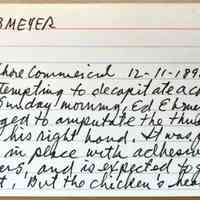 BMEYER
Shore Commercial 12-11-189
tempting to decapitate a c
unday morning, Ed Ehme
ged to amputate the thu
his right hand. It was p
in place with adhesiv
ers, and is expected to g
t. But the chicken's hea